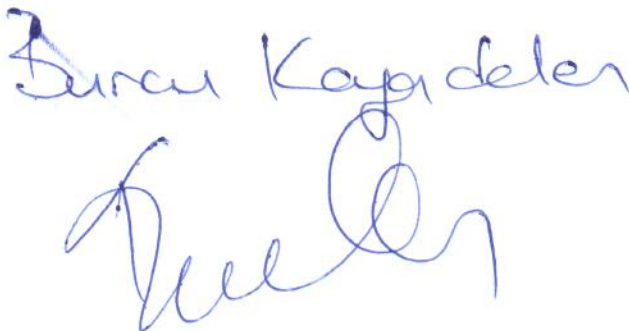 Burcu Kayadelen